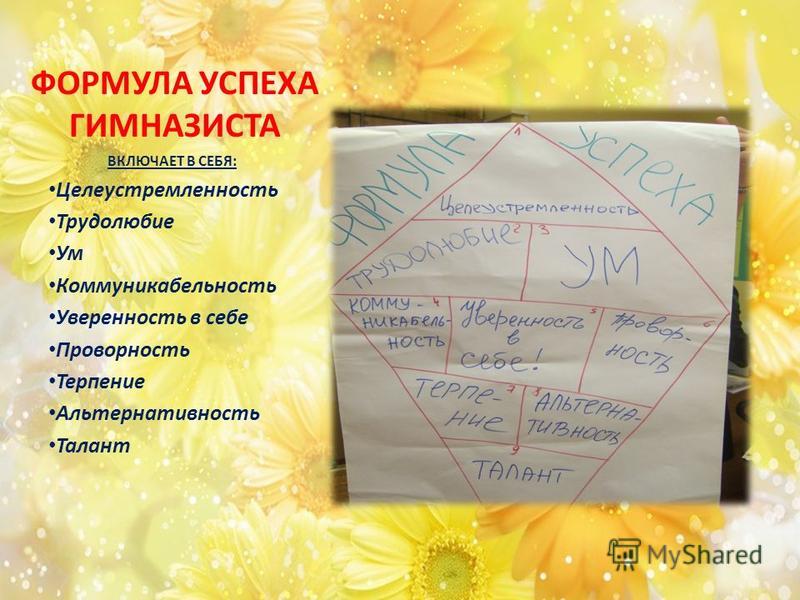 ФОРМУЛА УСПЕХА
ГИМНАЗИСТА
ВКЛЮЧАЕТ В СЕБЯ:
• Целеустремленность
• Трудолюбие
• Ум
• Коммуникабельность
• Уверенность в себе
• Проворность
• Терпение
• Альтернативность
• Талант
ФОРМУЛА УСПЕХА
1
Целеустремленность
2
ТРУДОЛЮБИЕ
3
УМ
4
КОММУ-
НИКАБЕЛЬ-
НОСТЬ
5
Уверенность
в
себе!
6
Провор-
ность
7
ТЕРПЕ-
НИЕ
8
АЛЬТЕРНА-
ТИВНОСТЬ
9
ТАЛАНТ
MyShared